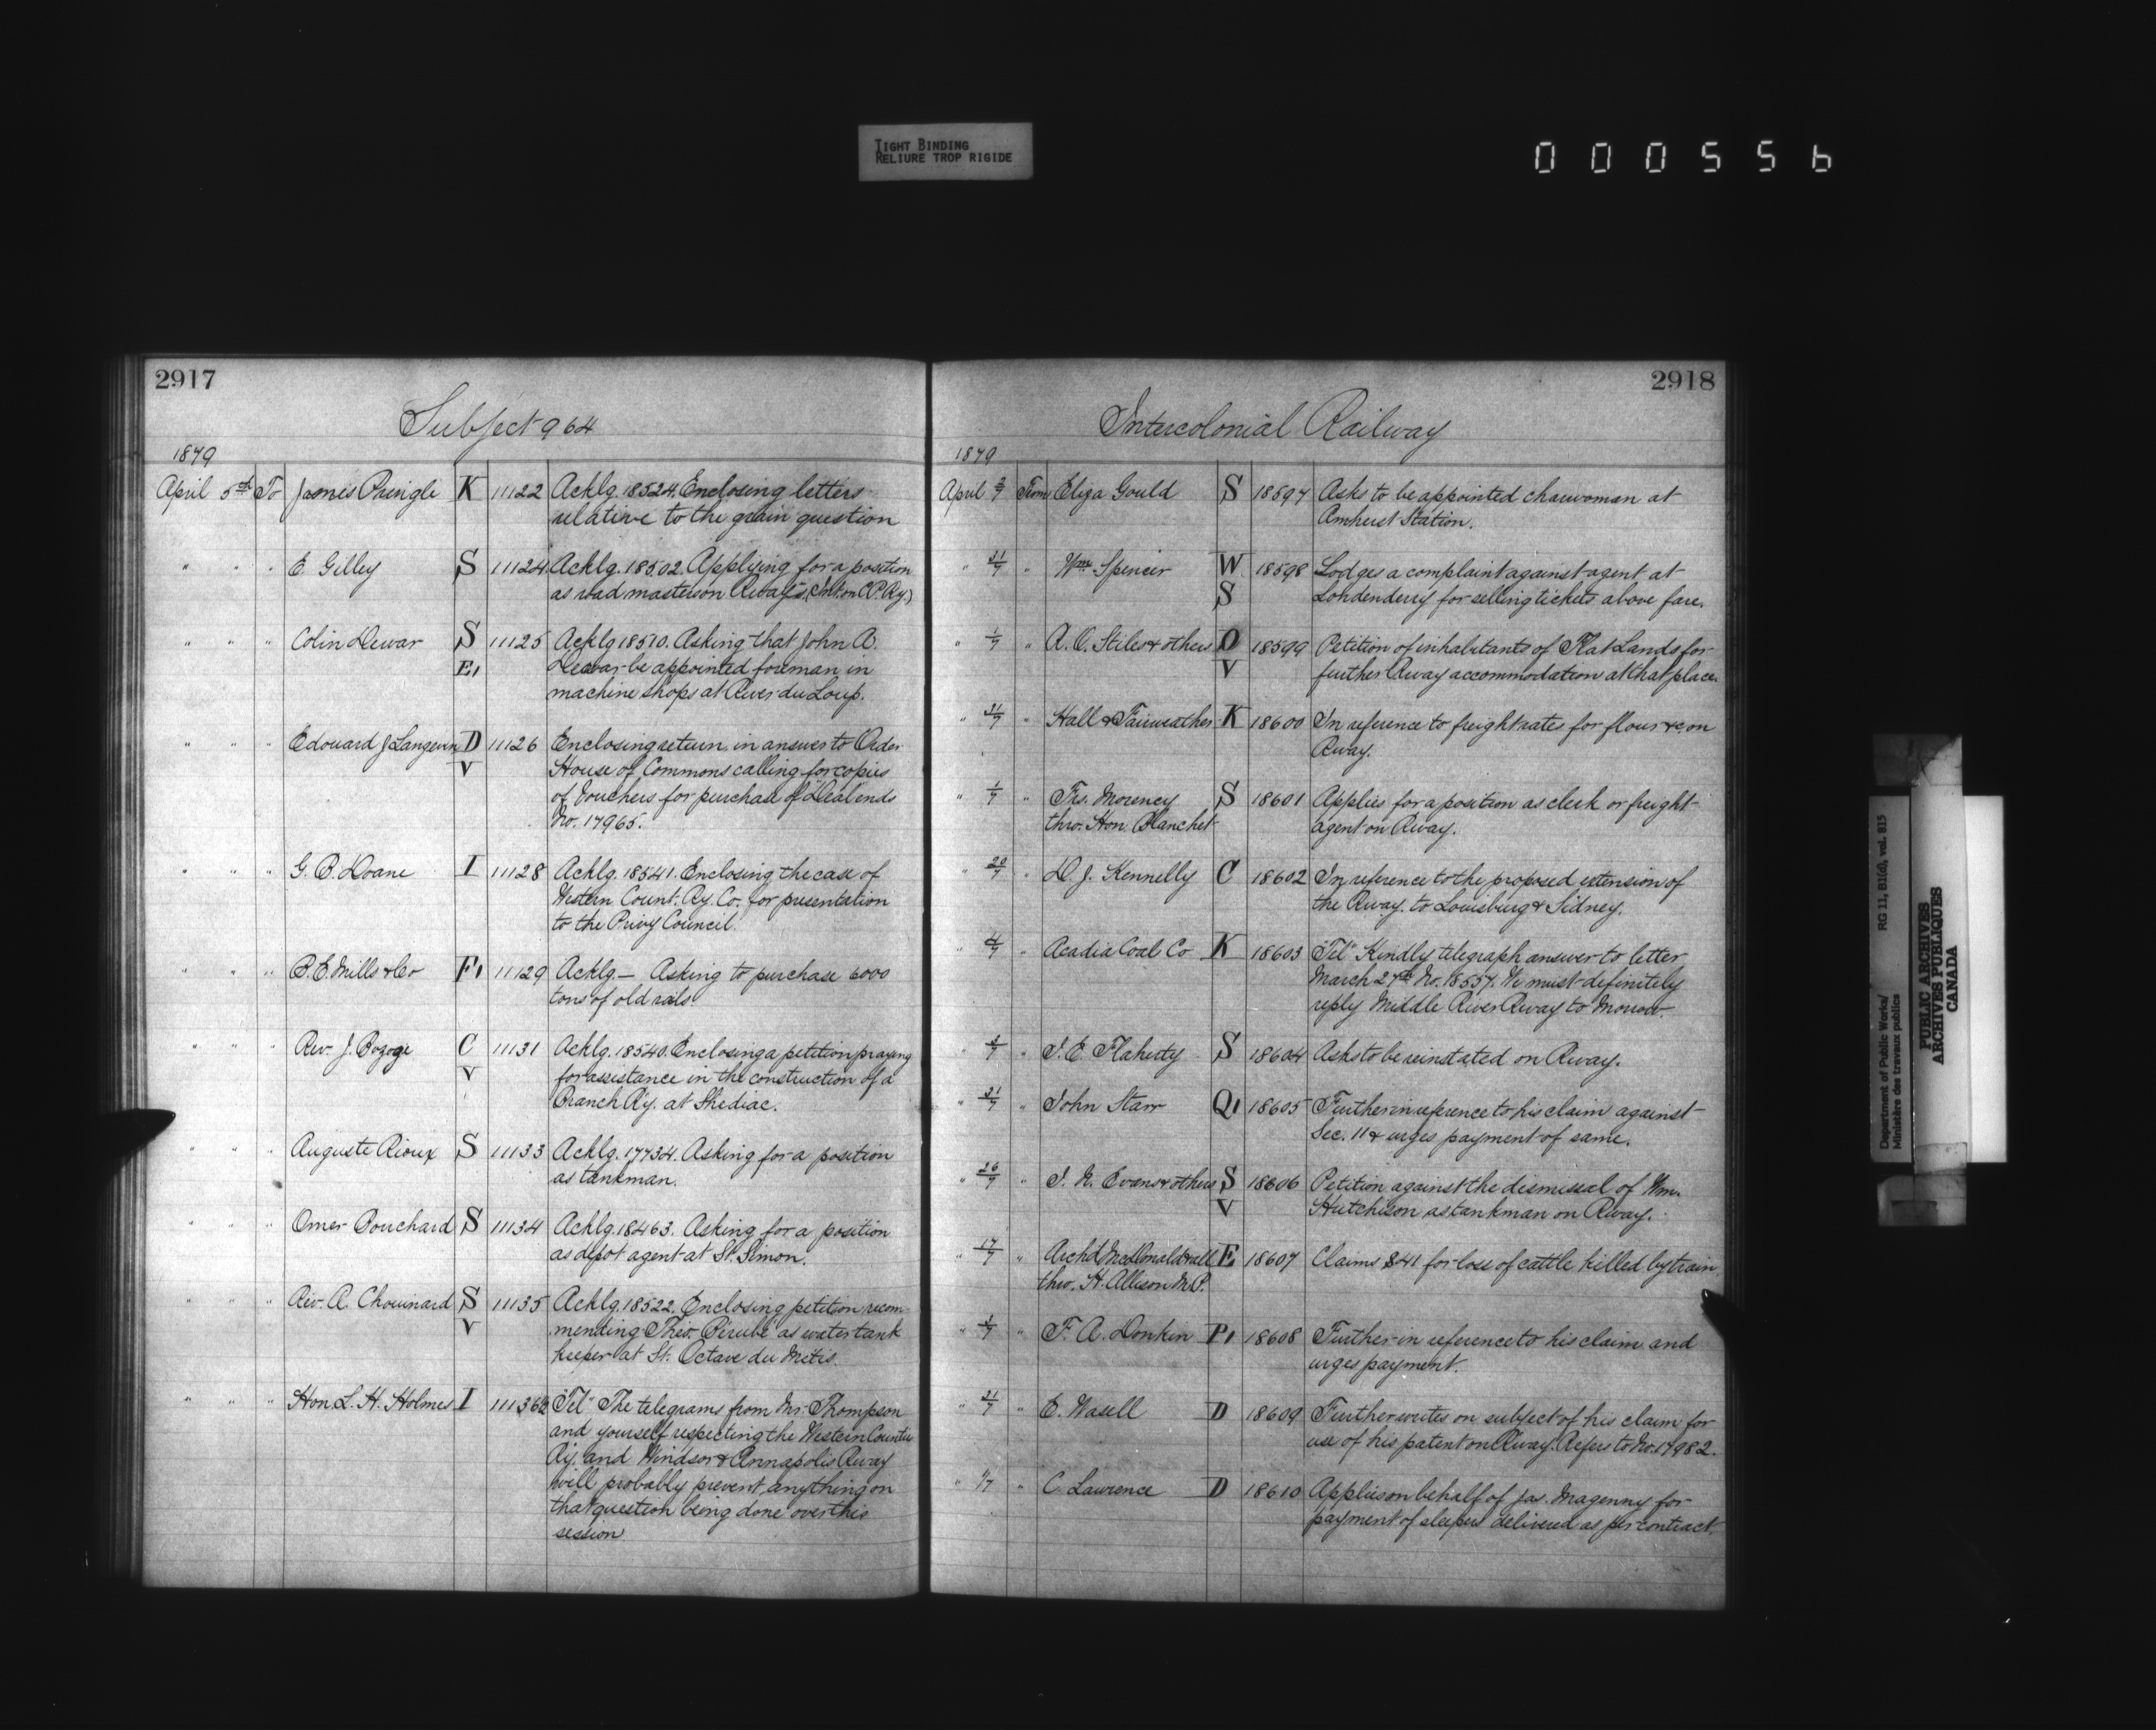 TIGHT BINDING
RELIURE TROP RIGIDE
000556
2917
Subject 964
1879
April 5th To James Pringle K 11122 Acklg. 18524. Enclosing letters
relative to the grain question
" " " E. Gilley S 11124 Acklg. 18502. Applying for a position
as road master on Rways. (Int. or C.P. Ry.)
" " " Colin Dewar S 11125 Acklg 18510. Asking that John A.
E, Dewar be appointed foreman in
machine shops at River du Loup.
" " " Edouard J Langevin D 11126 Enclosing return in answer to Order
V House of Commons calling for copies
of Vouchers for purchase of "Deal ends
No. 17965.
" " " G. B. Doane I 11128 Acklg. 18541. Enclosing the case of
Western Count. Ry. Co. for presentation
to the Privy Council.
" " " P. E. Mills & Co F, 11129 Acklg.— Asking to purchase 6000
tons of old rails.
" " " Rev. J. C 11131 Acklg. 18540. Enclosing a petition praying
V for assistance in the construction of a
Branch Ry. at Shediac.
" " " Auguste Rioux S 11133 Acklg. 17734. Asking for a position
as tankman.
" " " Omer Bouchard S 11134 Acklg. 18463. Asking for a position
as depot agent at St. Simon.
" " " Rev. A. Chouinard S 11135 Acklg. 18522. Enclosing petition recom-
V mending Theo. Pérubé as water tank
keeper at St. Octave du Metis.
" " " Hon. L. H. Holmes I 11136½ "Tel" The telegrams from Mr. Thompson
and yourself respecting the Western Counties
Ry. and Windsor & Annapolis Rway
will probably prevent anything on
that question being done over this
session
2918
Intercolonial Railway
1879
April 2/7 From Eliza Gould S 18597 Asks to be appointed charwoman at
Amherst Station.
" 31/7 " Wm Spencer W 18598 Lodges a complaint against agent at
S Londenderry for selling tickets above fare.
" 1/7 " A. C. Stiles & others O 18599 Petition of inhabitants of Flat Lands for
V further Rway accommodation at that place.
" 31/7 " Hall & Fairweather K 18600 In reference to freight rates for flour &c on
Rway.
" 1/7 " Frs. Morency S 18601 Applies for a position as clerk or freight
thro. Hon. Blanchet agent on Rway.
" 20/7 " D. J. Kennelly C 18602 In reference to the proposed extension of
the Rway. to Louisburg & Sidney.
" 4/7 " Acadia Coal Co K 18603 "Tel" Kindly telegraph answer to letter
March 27th No. 18557. We must definitely
reply Middle River Rway to Morrow.
" 5/7 " J. E. Flaherty S 18604 Asks to be reinstated on Rway.
" 31/7 " John Starr Q, 18605 Further in reference to his claim against
Sec. 11 & urges payment of same.
" 26/7 " J. N. Evans & others S 18606 Petition against the dismissal of Wm.
V Hutchison as tankman on Rway.
" 17/7 " Archd. McDonald & all E 18607 Claims $41 for loss of cattle killed by train
thro. H. Allison M.P.
" 3/7 " F. A. Donkin P, 18608 Further in reference to his claim and
urges payment.
" 21/7 " E. Wasell D 18609 Further writes on subject of his claim for
use of his patent on Rway. Refers to No. 17982.
" 1/7 " C. Lawrence D 18610 Applies on behalf of Jas. Magenny for
payment of sleepers delivered as per contract.
Department of Public Works/
Ministère des travaux publics
RG 11, B1(d), vol. 815
PUBLIC ARCHIVES
ARCHIVES PUBLIQUES
CANADA